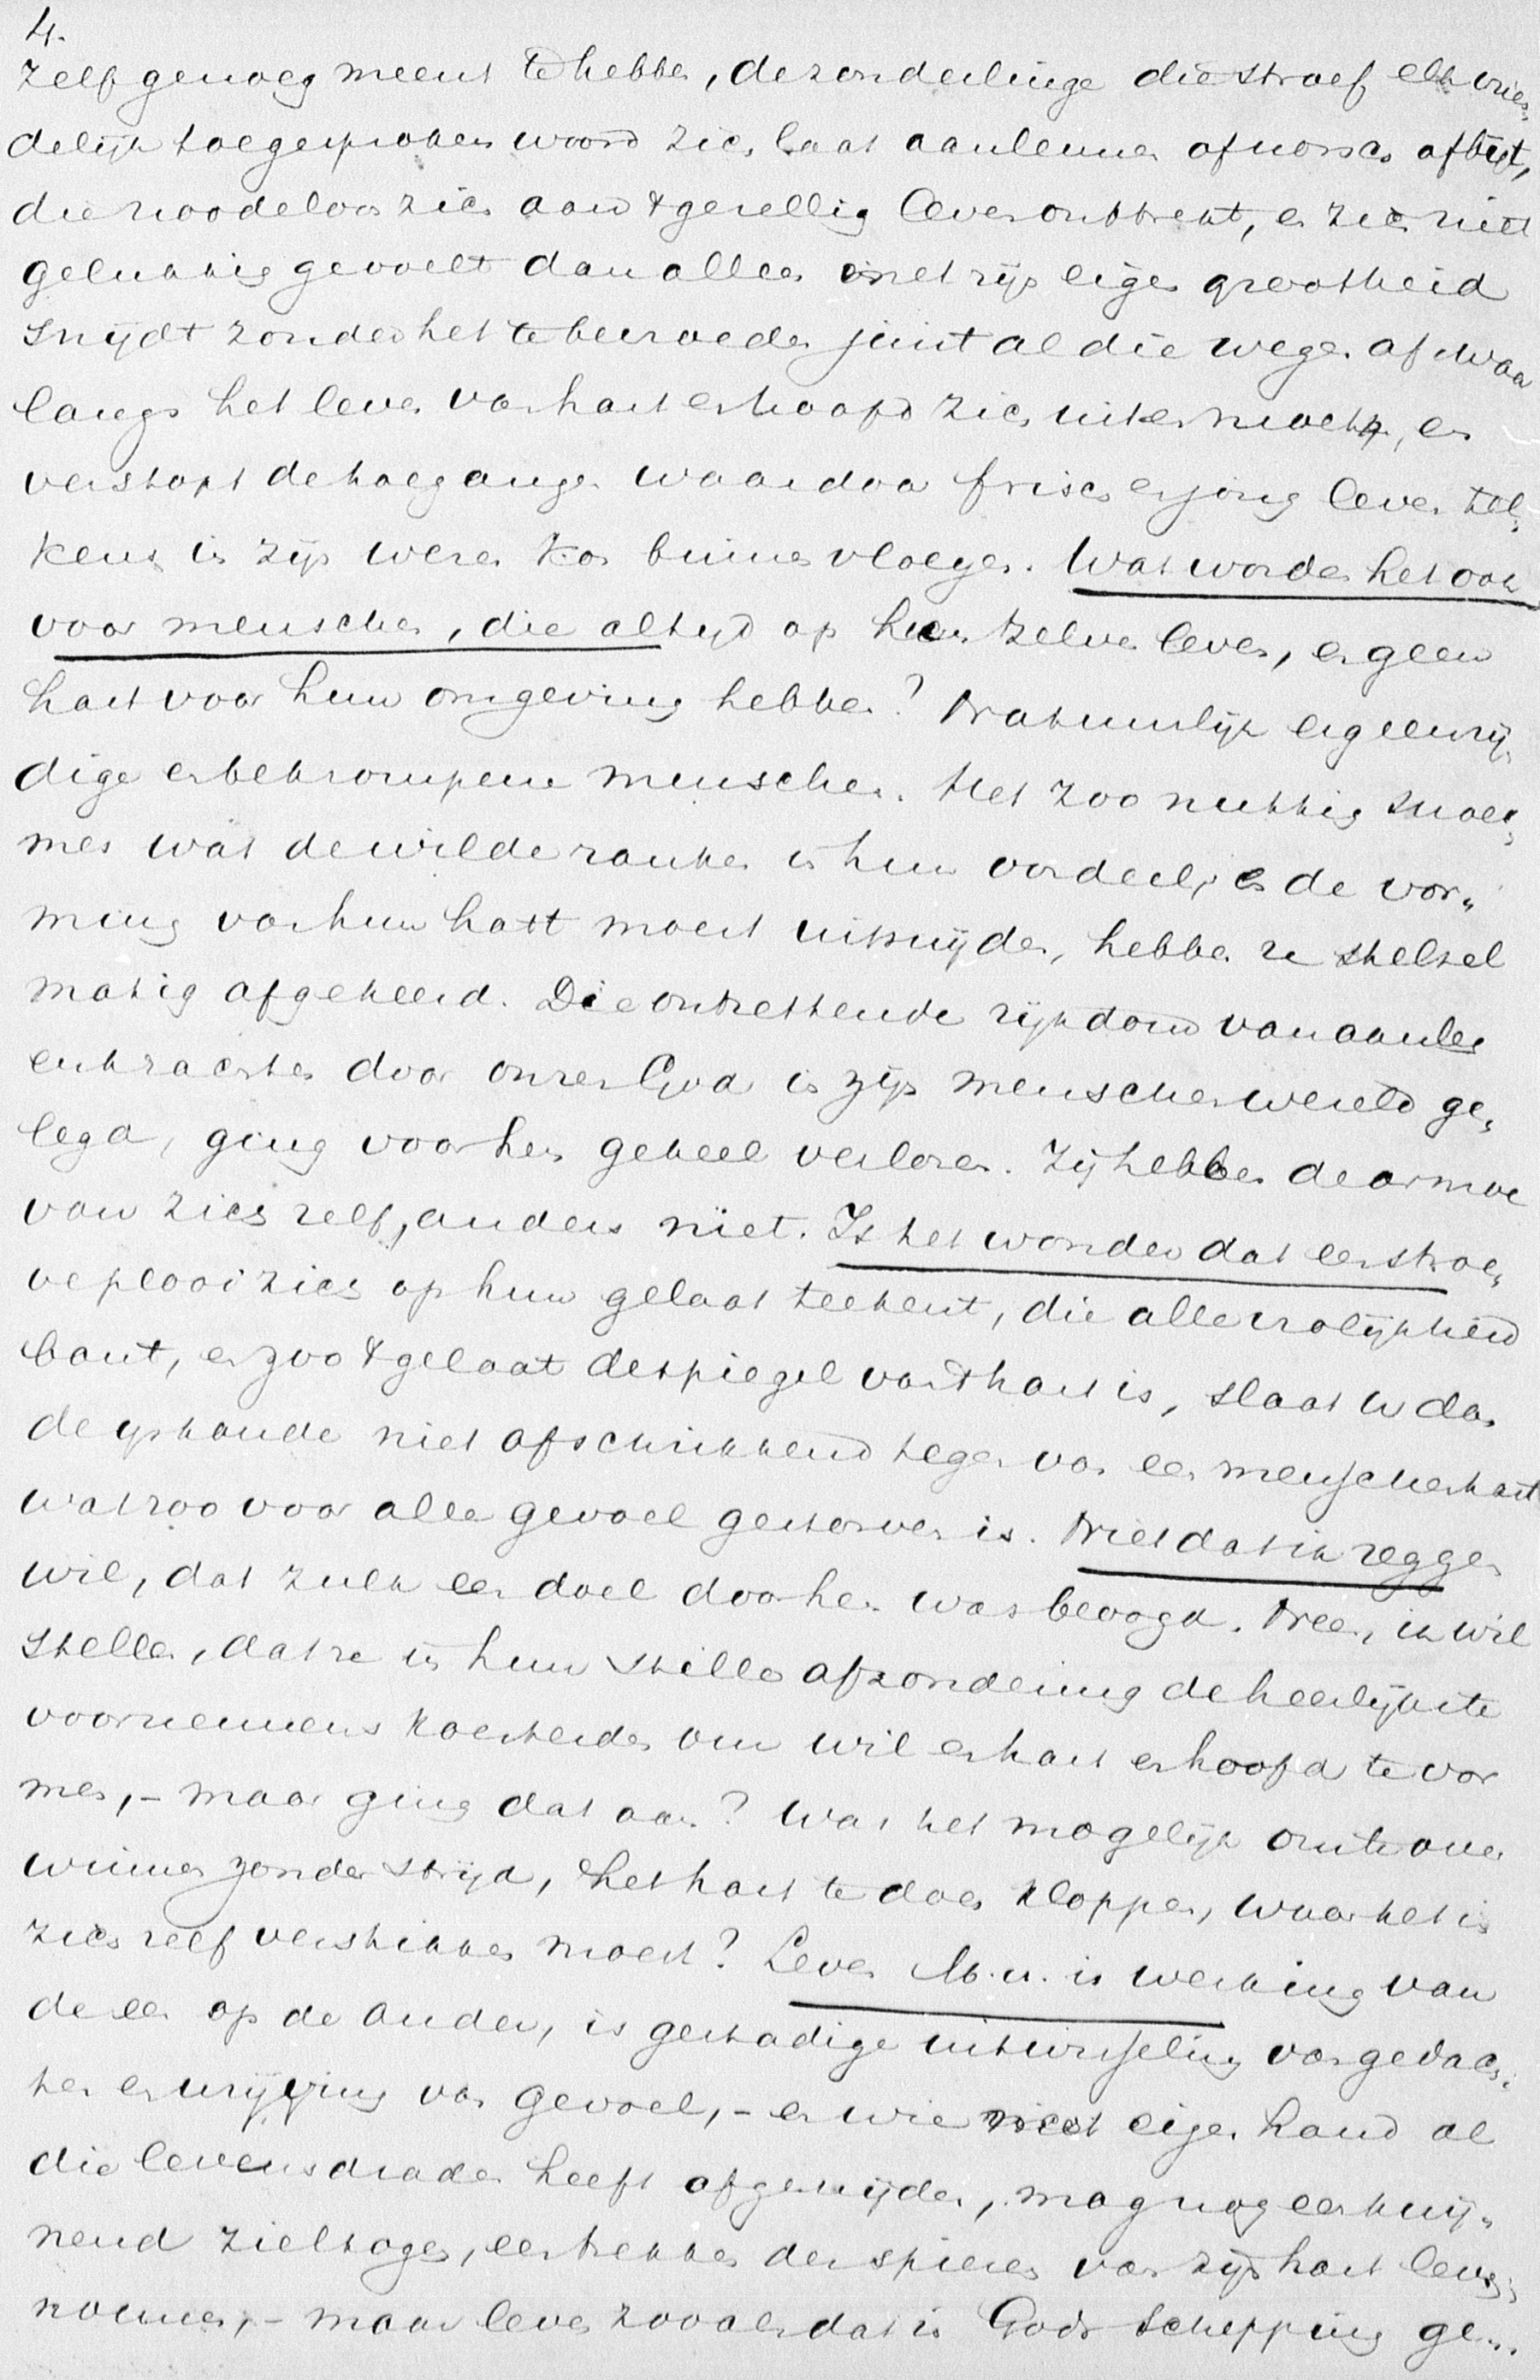 4.
zelf genoeg meent te hebben, de zonderlinge die stroef elk vrien„
delijk toegesproken woord zich laat aanleunen of norsch afbijt,
die noodeloos zich aan 't gezellig leven onttrekt, en zich niet
gelukkig gevoelt dan alleen met zijn eigen grootheid
snijdt zonder het te bevroeden juist al die wegen af waar
langs het leven van hart en hoofd zich uiten moest, en
verstopt de toegangen waardoor frisch en jong leven tel„
kens in zijn wezen kon binnenvloeyen. Wat worden het ook
voor menschen, die altijd op hun zelve leven, en geen
hart voor hun omgeving hebben? Natuurlijk eigenwij„
dige en bekrompene menschen. Het zoo nuttig snoei„
mes wat de wilde ranken in hun oordeel, en de vor„
ming van hun hart moest uitsnijden, hebben ze stelsel
matig afgekeerd. Die ontzettende rijkdom van aanleg
en krachten door onzen God in zijn menschenwereld ge„
legd, ging voor hen geheel verloren. Zij hebben de armoe
van zich zelf, anders niet. Is het wonder dat een stroe„
ve plooi zich op hun gelaat teekent, die alle vrolijkheid
bant, en zoo 't gelaat de spiegel van 't hart is, slaat u dan
de yskoude niet afschrikkend tegen van een menschenhart
wat zoo voor alle gevoel gestorven is. Niet dat ik zeggen
wil, dat zulk een doel door hen was beoogd. Neen, ik wil
stellen, dat ze in hun stille afzondering de heerlijkste
voornemens koesterden om wil en hart en hoofd te vor
men, – maar ging dat aan? Was het mogelijk om te over
winnen zonder strijd, het hart te doen kloppen, waar het in
zich zelf verstikken moest? Leven M.H. is werking van
de een op de ander, is gestadige uitwisseling van gedach„
ten en wrijving van gevoel, – en wie met eigen hand al
die levensdraden heeft afgesneden, mag nog een kwij„
nend zieltogen, een trekken der spieren van zijn hart leven
noemen, – maar leven zooals dat in Gods schepping ge...